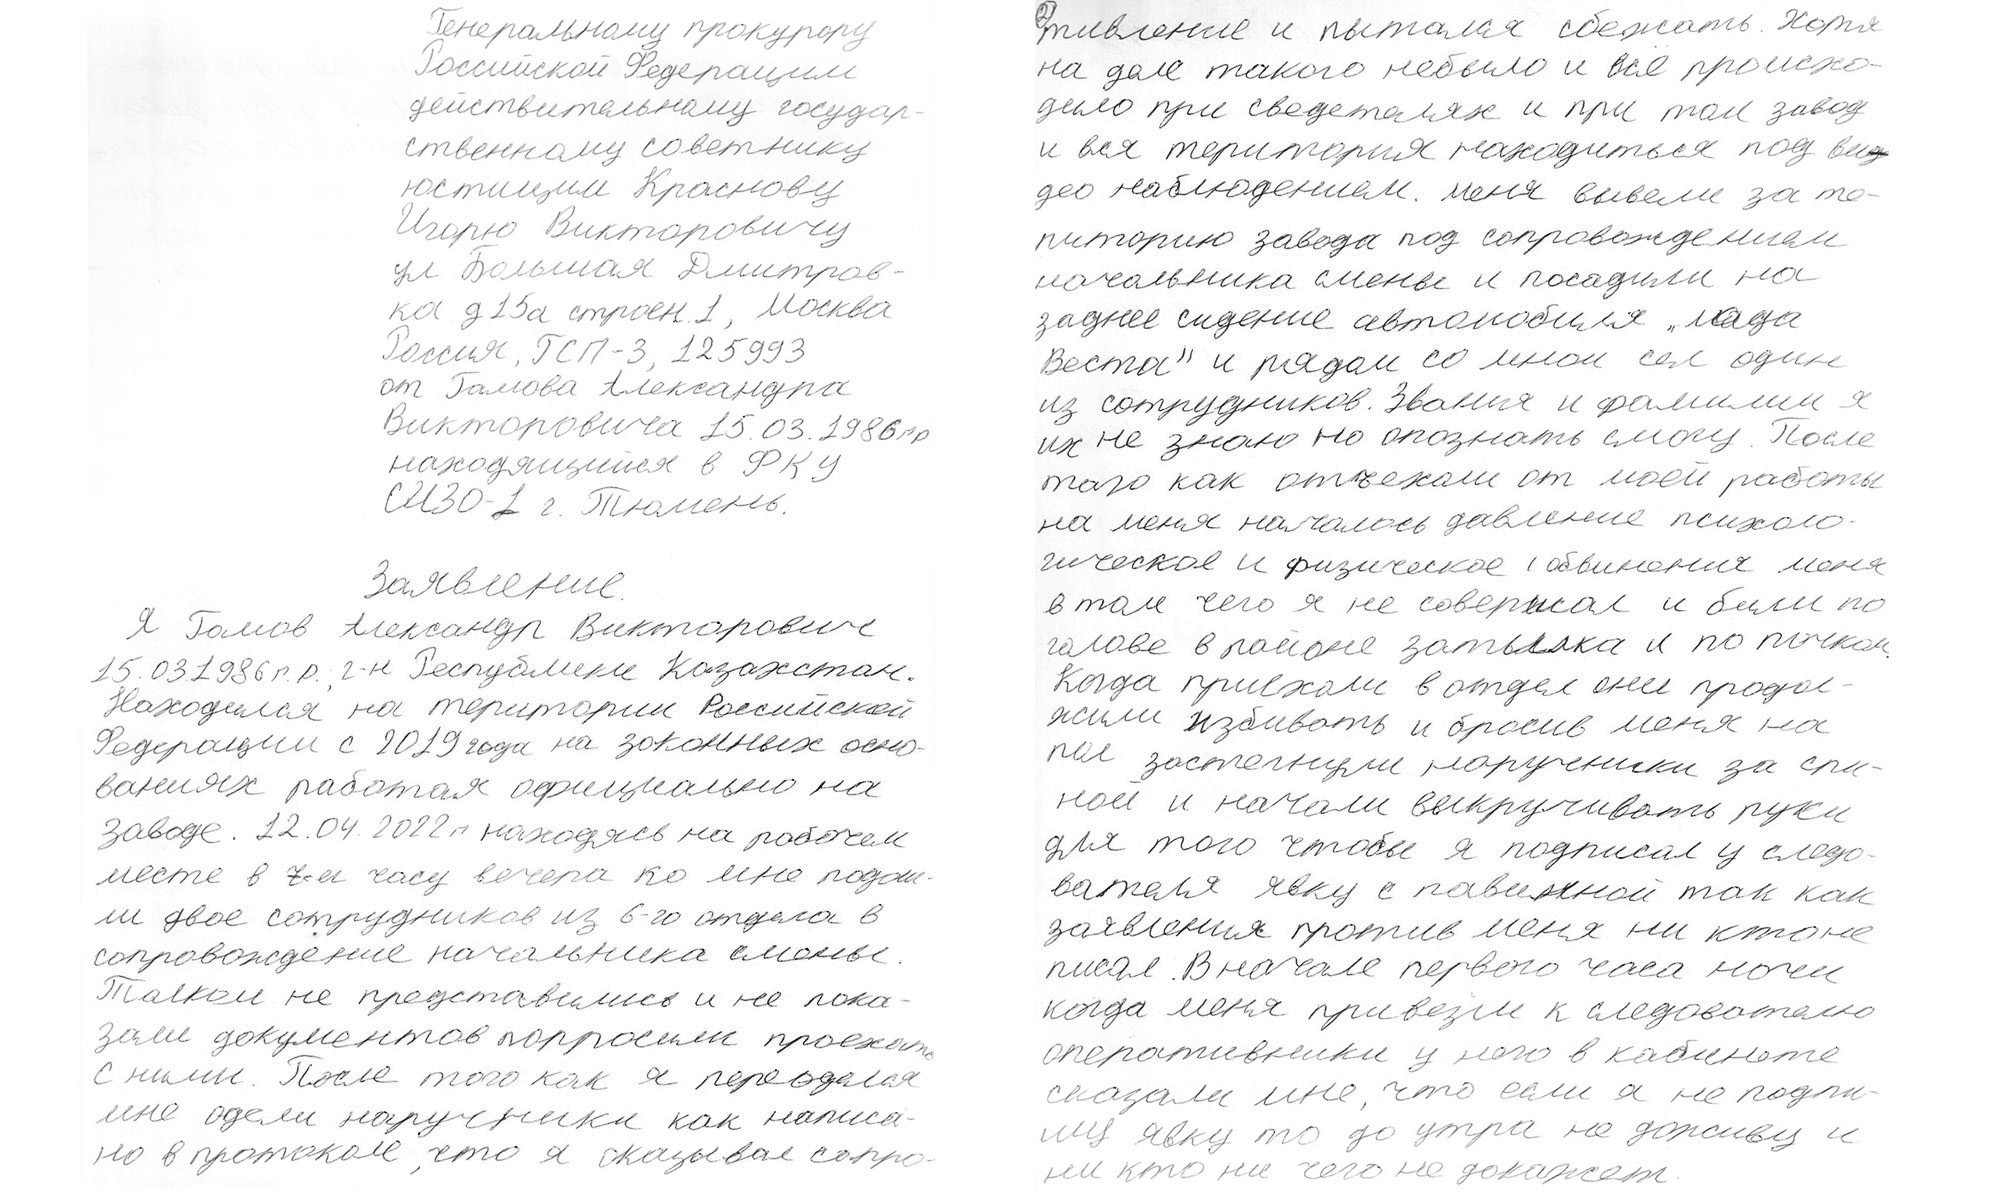 Генеральному прокурору
Российской Федерации
действительному государ-
ственному советнику
юстиции Краснову
Игорю Викторовичу
ул Большая Дмитров-
ка д 15а строен.1, Москва
Россия, ГСП-3, 125993
от Гамова Александра
Викторовича 15.03.1986г.р
находящийся в ФКУ
СИЗО-1 г. Тюмень.
Заявление.
Я Гамов Александр Викторович
15.03.1986г.р., г-н Республики Казахстан.
Находился на територии Российской
Федерации с 2019 года на законных осно-
ваниях работая официально на
заводе. 12.04.2022г находясь на рабочем
месте в 7-м часу вечера ко мне подош-
ли двое сотрудников из 6-го отдела в
сопровождение начальника смены.
Толком не представились и не пока-
зали документов попросили проехать
с ними. После того как я переоделся
мне одели наручники как написа-
но в протоколе, что я оказывал сопро-
2
тивление и пытался сбежать. Хотя
на деле такого небыло и всё происхо-
дило при сведетелях и при том завод
и вся територия находиться под ви
део наблюдением. меня вывели за те-
риторию завода под сопровождением
начальника смены и посадили на
заднее сидение автомобиля „лада
Веста" и рядом со мной сел один
из сотрудников. Звания и фамилии я
их не знаю но опознать смогу. После
того как отъехали от моей работы
на меня началось давление психоло-
гическое и физическое, обвинения меня
в том чего я не совершал и били по
голове в районе затылка и по почкам.
Когда приехали в отдел они продол-
жили избивать и бросив меня на
пол застегнули наручники за спи-
ной и начали выкручивать руки
для того чтобы я подписал у следо-
вателя явку с павинной так как
заявления против меня ни кто не
писал. В начале первого часа ночи
когда меня привезли к следователю
оперативники у него в кабинете
сказали мне, что если я не подпи-
шу явку то до утра не доживу и
ни кто ни чего не докажет.